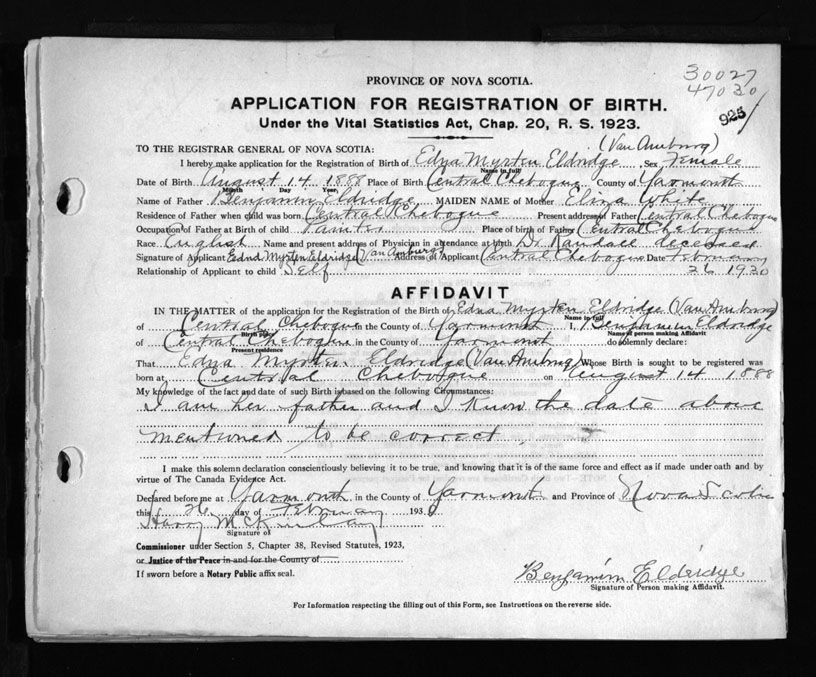 30027
47030
925
PROVINCE OF NOVA SCOTIA.
APPLICATION FOR REGISTRATION OF BIRTH.
Under the Vital Statistics Act, Chap. 20, R. S. 1923.
(Van Amburg)
TO THE REGISTRAR GENERAL OF NOVA SCOTIA:
I hereby make application for the Registration of Birth of Edna Myrten Eldridge Sex Female
Name in full
Date of Birth August 14 1888 Place of Birth Central Chebogue County of Yarmouth
Month Day Year
Name of Father Benjamin Eldridge MAIDEN NAME of Mother Eliza White
Residence of Father when child was born Central Chebogue Present address of Father Central Chebogue
Occupation of Father at Birth of child Place of birth of Father Central Chebogue
Race English Name and present address of Physician in attendance at birth Dr Randall deceased
Signature of Applicant Edna Myrten Eldridge (Van Amburg) Address of Applicant Central Chebogue Date February
Relationship of Applicant to child Self 26 1930
AFFIDAVIT
IN THE MATTER of the application for the Registration of the Birth of Edna Myrten Eldridge (Van Amburg)
Name in full
of Central Chebogue in the County of Yarmouth I, Benjamin Eldridge
Birth place Name of person making Affidavit
of Central Chebogue in the County of Yarmouth do solemnly declare:
Present residence
That Edna Myrten Eldridge (Van Amburg) Whose Birth is sought to be registered was
born at Central Chebogue on August 14 1888
My knowledge of the fact and date of such Birth is based on the following Circumstances:
I am her father and I know the date above
mentioned to be correct.
I make this solemn declaration conscientiously believing it to be true, and knowing that it is of the same force and effect as if made under oath and by
virtue of The Canada Evidence Act.
Declared before me at Yarmouth in the County of Yarmouth and Province of Nova Scotia
this 26 day of February 1930
Harry McKinlay
Signature of
Commissioner under Section 5, Chapter 38, Revised Statutes, 1923,
or Justice of the Peace in and for the County of
If sworn before a Notary Public affix seal.
Benjamin Elderidge
Signature of Person making Affidavit.
For Information respecting the filling out of this Form, see Instructions on the reverse side.